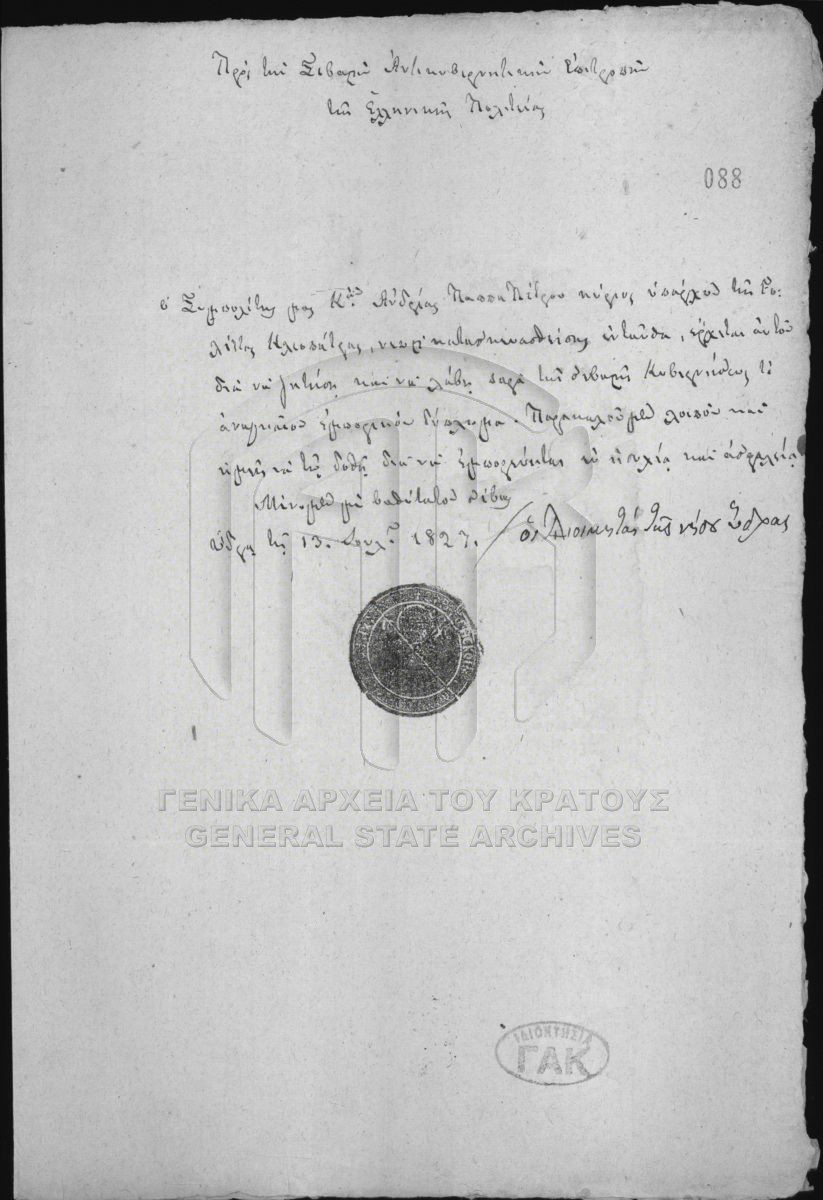 Πρὸς τὴν Σεβαστὴν Ἀντικυβερνητικὴν Ἐπιτροπὴν
τῆς Ἑλληνικῆς Πολιτείας
088
ὁ Συμπολίτης μας Κύρ Ἀνδρέας Παππα Πέτρου κύριος ὑπάρχων τῆς Γο-
λέττας Κλεοπάτρας, νεωστὶ κατασκευασθείσης ἐνταῦθα, ἔρχεται αὐτοῦ
διὰ νὰ ζητήσῃ καὶ νὰ λάβῃ παρὰ τῆς σεβαστῆς Κυβερνήσεως τὸ
ἀναγκαῖον ἐμπορικὸν δίπλωμα. Παρακαλοῦμεν λοιπὸν καὶ
ἡμεῖς νὰ τῷ δοθῇ διὰ νὰ ἐμπορεύηται ἐν ἡσυχίᾳ καὶ ἀσφαλείᾳ
Μένομεν μὲ βαθύτατον σέβας
Ὕδρᾳ τῆς 13. Ἰουλ. 1827. οἱ Διοικηταὶ τῆς νήσου Ὕδρας
ΓΕΝΙΚΑ ΑΡΧΕΙΑ ΤΟΥ ΚΡΑΤΟΥΣ
GENERAL STATE ARCHIVES
ΙΔΙΟΚΤΗΣΙΑ
ΓΑΚ